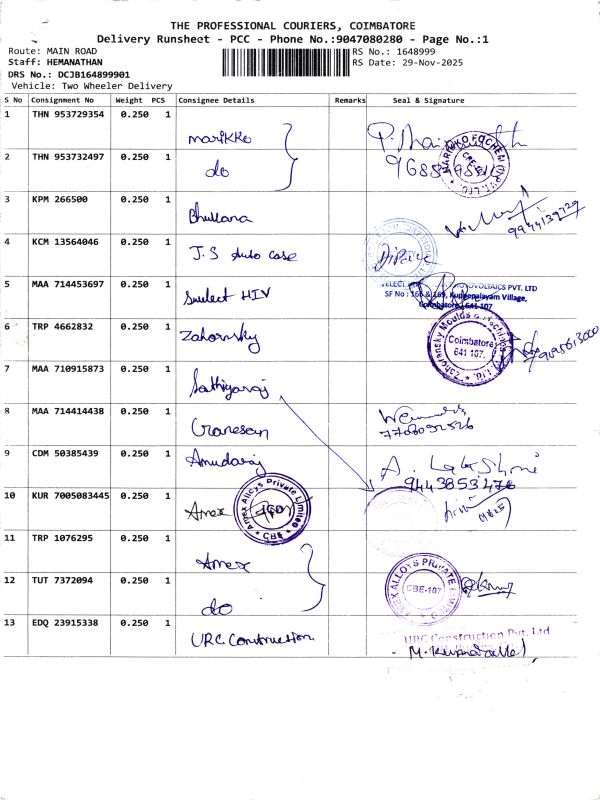 THE PROFESSIONAL COURIERS, COIMBATORE
Delivery Runsheet - PCC - Phone No.:9047080280 - Page No.:1
Route: MAIN ROAD RS No.: 1648999
Staff: HEMANATHAN RS Date: 29-Nov-2025
DRS No.: DCJB164899901
Vehicle: Two Wheeler Delivery
S No Consignment No Weight PCS Consignee Details Remarks Seal & Signature
1 THN 953729354 0.250 1 marikko
MARIKKO FOCHEM (P) LTD.
2 THN 953732497 0.250 1 do
3 KPM 266500 0.250 1 Bhullana
9944139729
4 KCM 13564046 0.250 1 J.S Auto case
5 MAA 714453697 0.250 1 Suelect HIV
VOLTAICS PVT. LTD
SF No : 166 & 169, Kuppepalayam Village,
Coimbatore - 641 107
6 TRP 4662832 0.250 1 Zahornsky
Zahoransky Moulds & Machines
Coimbatore
641 107.
7 MAA 710915873 0.250 1 Sathiyaraj
8 MAA 714414438 0.250 1 Ganesan
7708092526
9 CDM 50385439 0.250 1 Anudaraj
A. Lakshmi
9443853476
10 KUR 7005083445 0.250 1 Annex
Annex Alloys Private Limited
CBE
11 TRP 1076295 0.250 1 Annex
ANNEX ALLOYS PRIVATE LIMITED
CBE-107
12 TUT 7372094 0.250 1 do
13 EDQ 23915338 0.250 1 URC Construction
URC Construction Pvt. Ltd